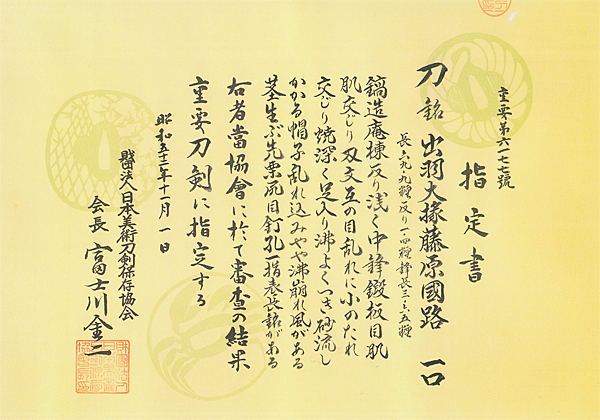 重要第六一七七號
指定書
刀 銘 出羽大掾藤原國路 一口
長六九・九糎 反り一・四糎 鋒長三・五糎
鎬造庵棟反り浅く中鋒鍛板目肌
肌交じり刃文互の目乱れに小のたれ
交じり焼深く足入り沸よくつき砂流し
かかる帽子乱れ込みやや沸崩れ風がある
茎生ぶ先栗尻目釘孔一指表長銘がある
右者當協會に於て審査の結果
重要刀剣に指定する
昭和五十二年十一月一日
財団法人日本美術刀剣保存協会
会長 富士川金二